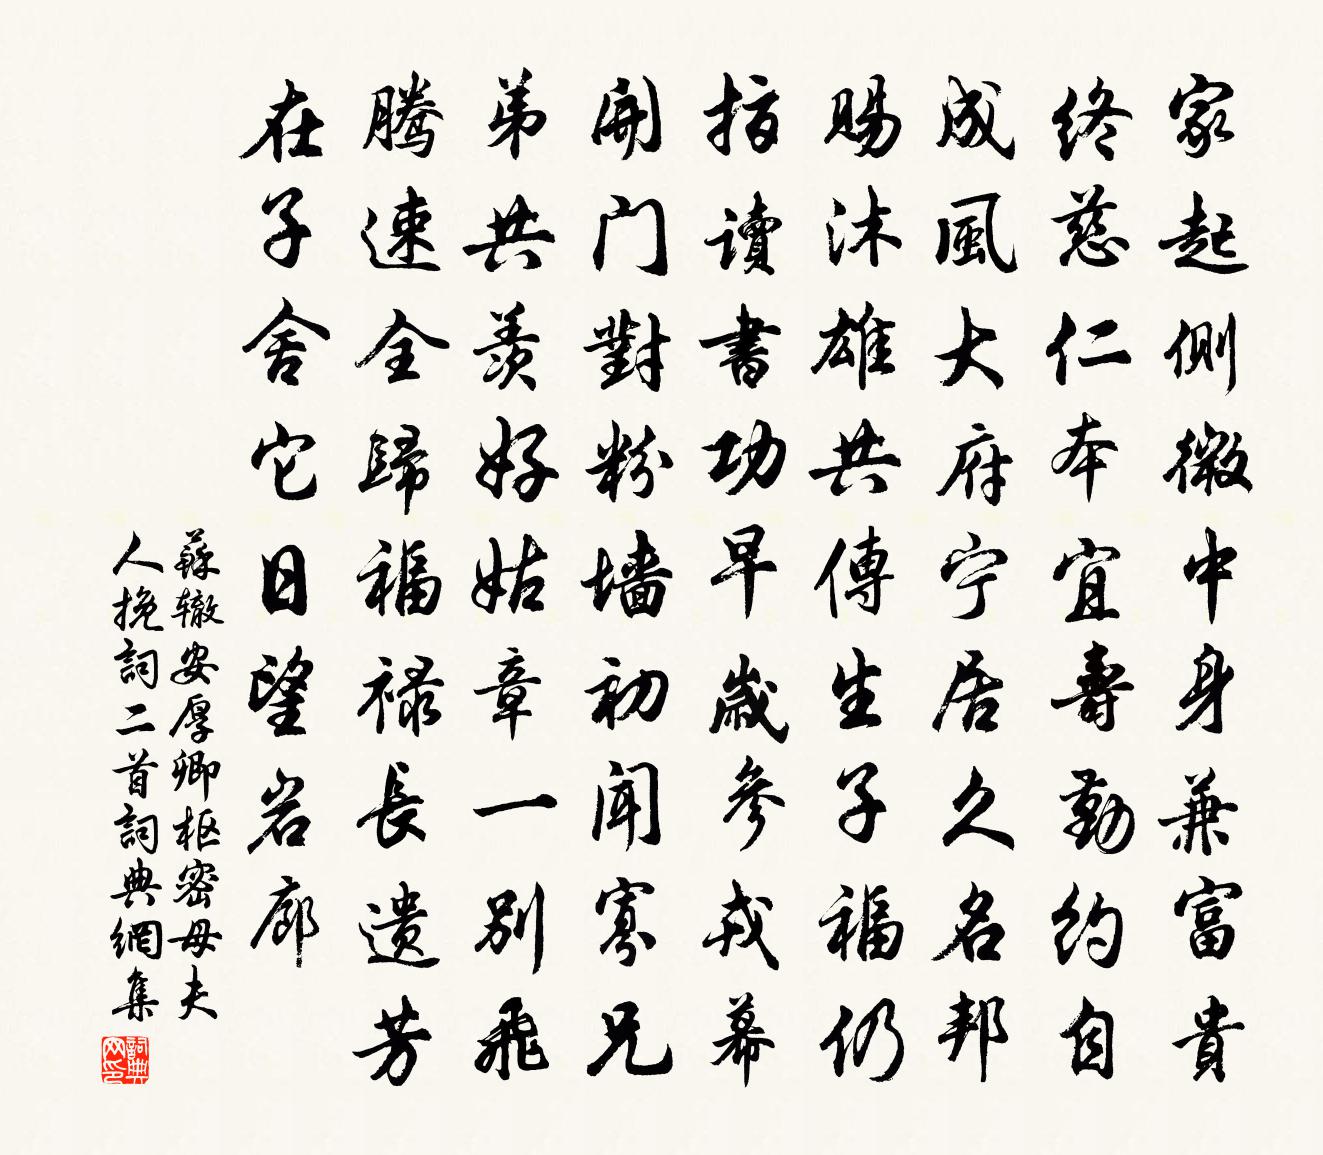 家起側微中身兼富貴
終慈仁本宜壽勤約自
成風大府宁居久名邦
賜沐雄共傳生子福仍
指讀書功早歲參戎幕
開门對粉墙初闻寡兄
弟共羨好姑章一別飛
騰速全歸福禄長遗芳
在子舍它日望岩廊
蘇辙安厚卿枢密母夫
人挽詞二首詞典網集
詞典网印